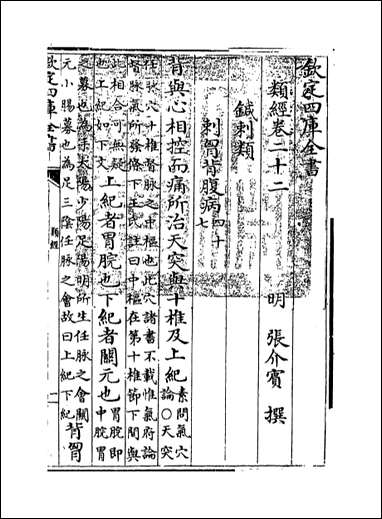 欽定四庫全書
類經卷二十二
明 張介賓 撰
鍼刺類
刺胷背腹病四十七
背與心相控而痛所治天突與十椎及上紀素問氣穴論○天突
任脈穴十椎督脈之中樞也此穴諸書不載惟氣府論
督脈氣所發條下王氏註曰中樞在第十椎節下間與
此相合可無疑也上紀如下文上紀者胃脘也下紀者關元也胃脘即中脘胃
之募也為手太陽少陽足陽明所生任脈之會關
元小腸募也為足三陰任脈之會故曰上紀下紀背胷
欽定四庫全書
類經
一